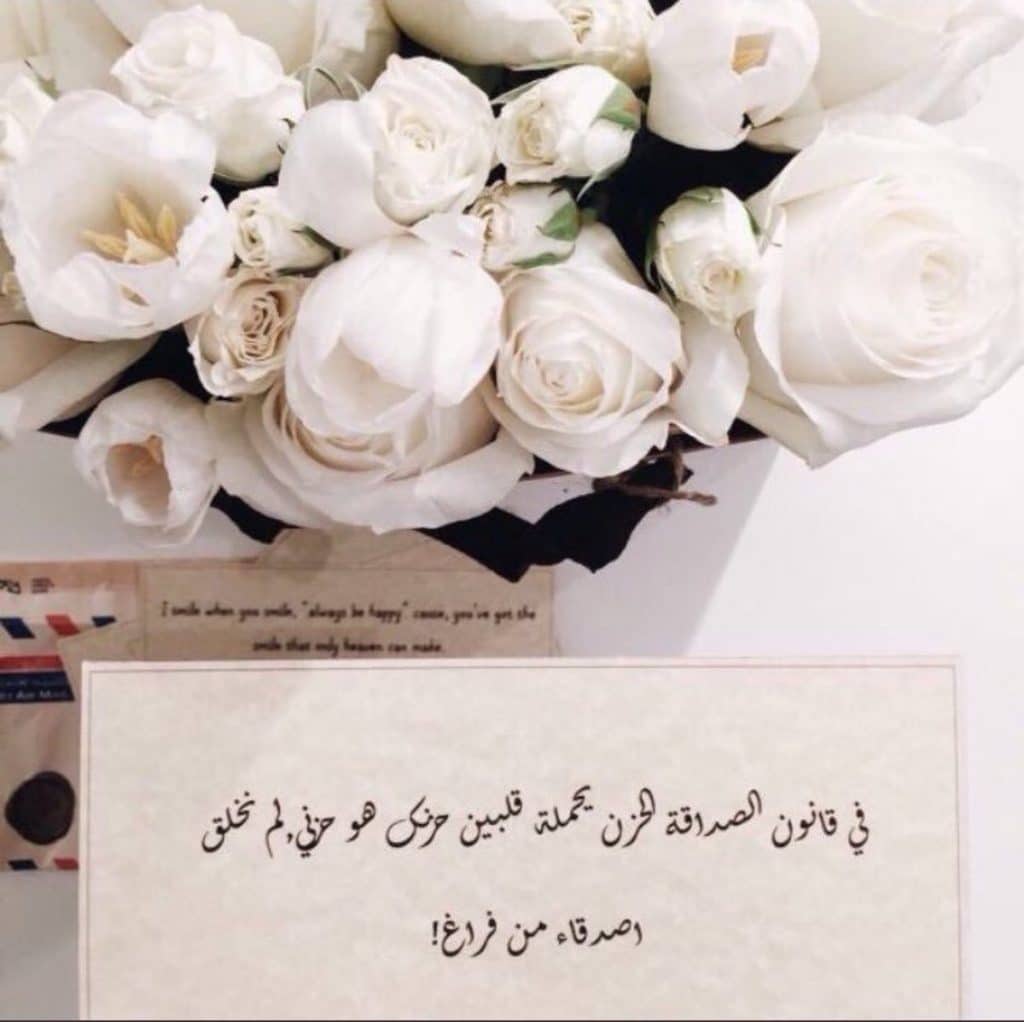 I smile when you smile, "always be happy" cause, you've got the
smile that only heaven can make.
AIR MAIL
في قانون الصداقة الحزن يحملة قلبين حزنك هو حزني,لم نخلق
اصدقاء من فراغ!